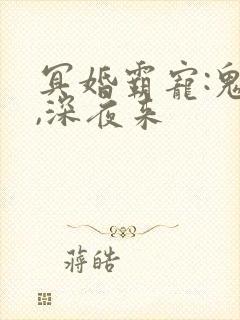 冥婚霸宠:鬼
,深夜来
蒋皓